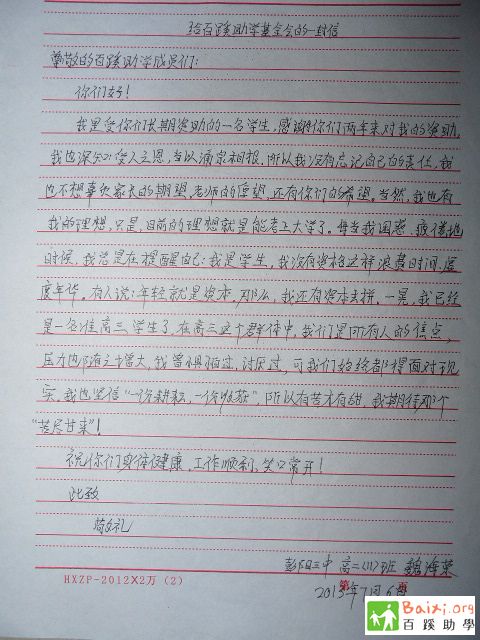 给百蹊助学基金会的一封信
尊敬的百蹊助学成员们:
你们好!
我是受你们长期资助的一名学生,感谢你们两年来对我的资助,
我也深知受人之恩,当以涌泉相报,所以我没有忘记自己的责任,我
也不想辜负家长的期望,老师的厚望,还有你们的希望。当然,我也有
我的理想,只是,目前的理想就是能考上大学了。每当我困惑、疲倦地
时候,我总是在提醒自己:我是学生,我没有资格这样浪费时间,虚
度年华。有人说:年轻就是资本,那么,我还有资本去拼,一晃,我已经
是一名准高三学生了,在高三这个群体中,我们是所有人的焦点,
压力也随之增大,我曾惧怕过,讨厌过,可我们始终都得面对现
实,我也坚信“一份耕耘,一份收获”,所以有苦才有甜,我期待那个
“苦尽甘来”!
祝你们身体健康,工作顺利,笑口常开!
此致
敬礼
彭阳三中 高二(11)班 魏海荣
2013年7月6日
HXZP-2012X2万 (2)
第 页
Baixi.org
百蹊助學